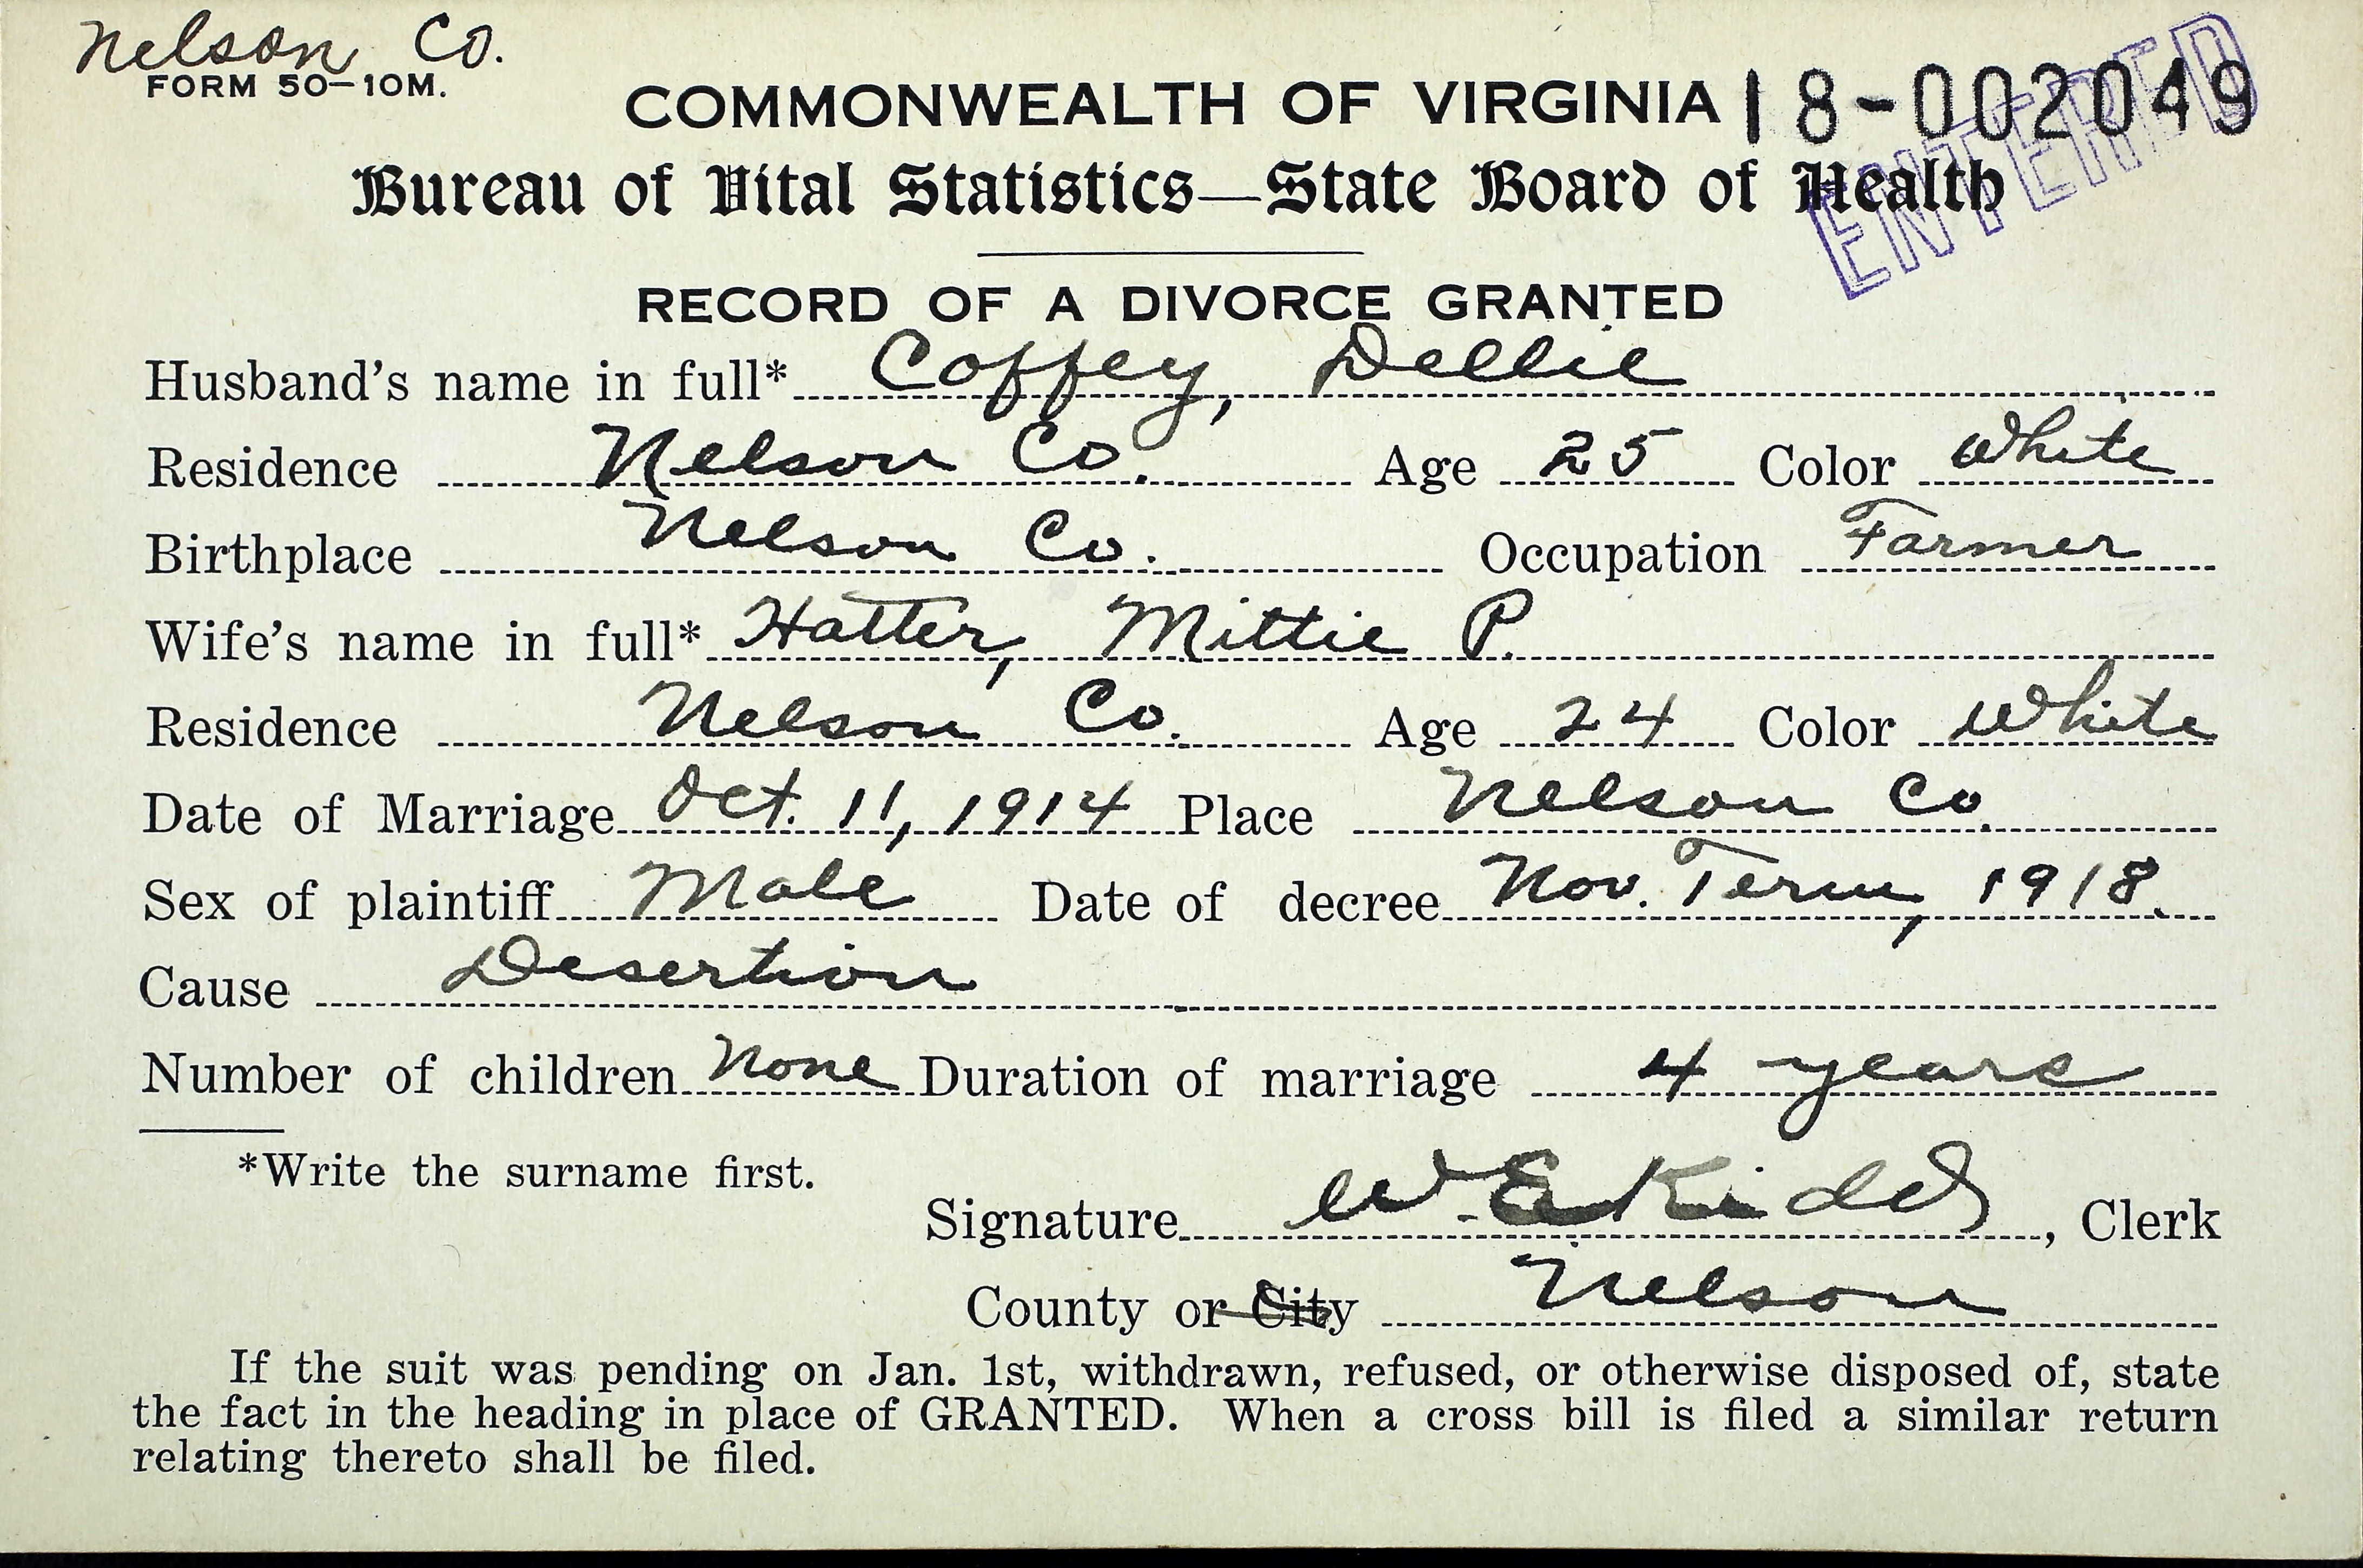 Nelson Co.
FORM 50—10M.
COMMONWEALTH OF VIRGINIA 18-002049
ENTERED
Bureau of Vital Statistics—State Board of Health
RECORD OF A DIVORCE GRANTED
Husband's name in full* Coffey, Dellie
Residence Nelson Co. Age 25 Color White
Birthplace Nelson Co. Occupation Farmer
Wife's name in full* Hatter, Mittie P.
Residence Nelson Co. Age 24 Color White
Date of Marriage Oct. 11, 1914 Place Nelson Co.
Sex of plaintiff Male Date of decree Nov. Term, 1918.
Cause Desertion
Number of children None Duration of marriage 4 years
*Write the surname first.
Signature W. E. Kidd, Clerk
County or City Nelson
If the suit was pending on Jan. 1st, withdrawn, refused, or otherwise disposed of, state
the fact in the heading in place of GRANTED. When a cross bill is filed a similar return
relating thereto shall be filed.